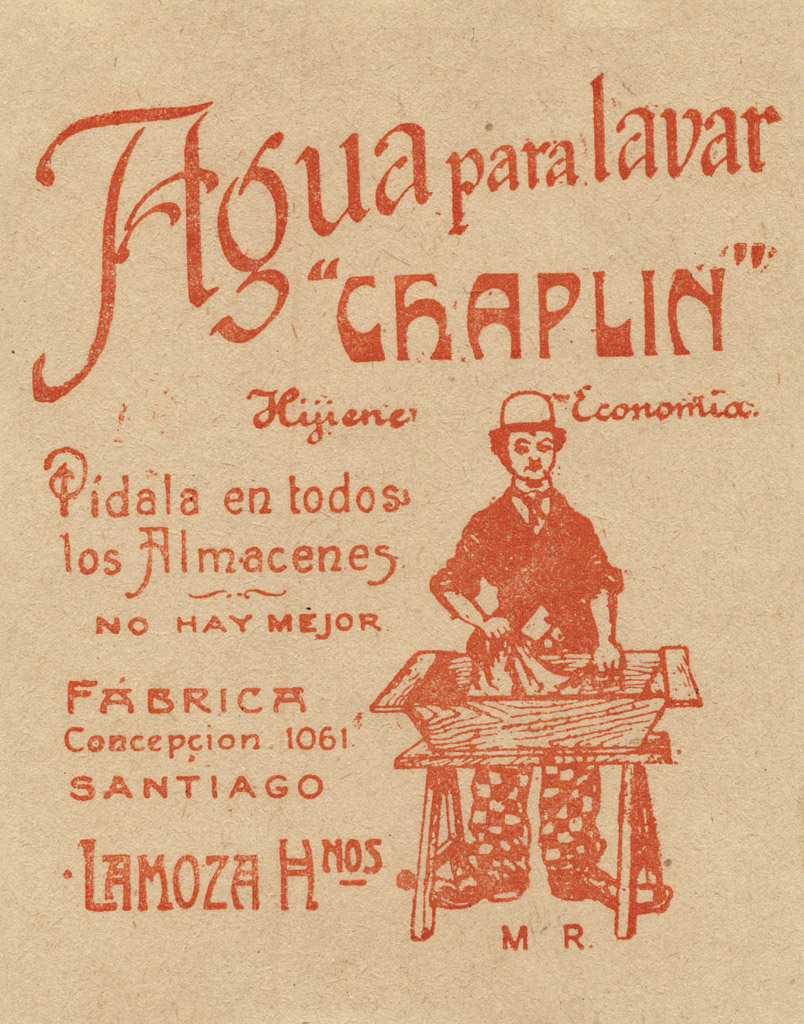 Agua para lavar
"CHAPLIN"
Hijiene Economía.
Pídala en todos
los Almacenes
NO HAY MEJOR
FÁBRICA
Concepçion 1061
SANTIAGO
LAMOZA HNOS
M R.